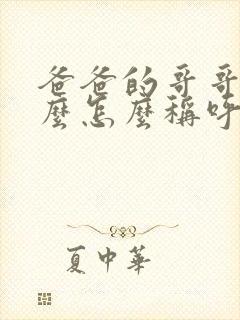 爸爸的哥哥
麼怎麼稱呼
夏中華